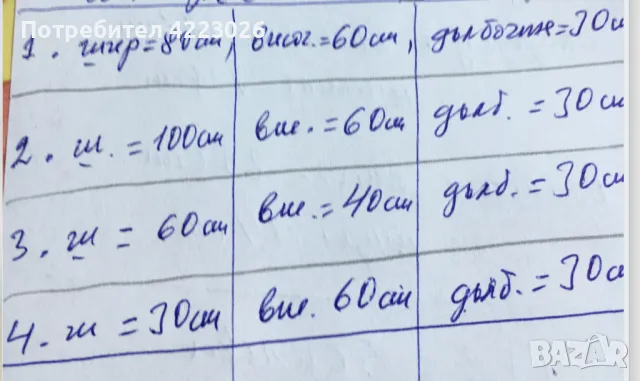 Потребител 4223026
1. шир = 80см, височ. = 60см, дълбочина = 30с
2. ш. = 100см вис. = 60см дълб. = 30см
3. ш = 60см вис. = 40см дълб. = 30см
4. ш = 30см вис. 60см дълб. = 30с
BAZAR